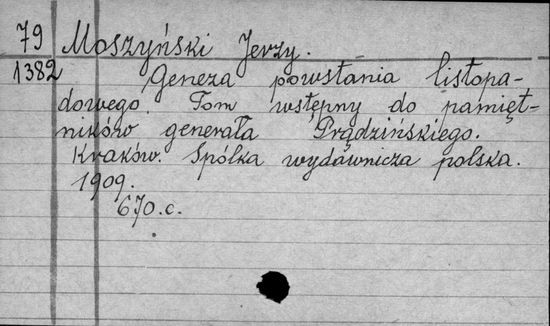 79 Moszyński Jerzy.
1382 Geneza powstania listopa-
dowego. Tom wstępny do pamięt-
ników generała Prądzińskiego.
Kraków. Spółka wydawnicza polska.
1909.
670.c.